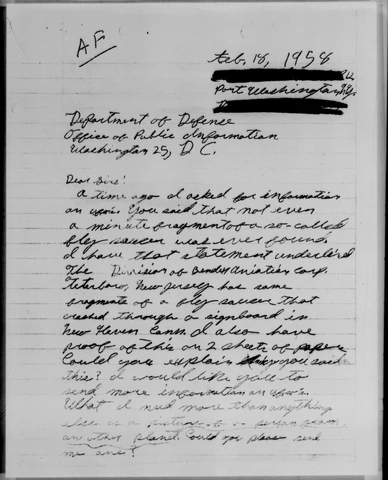 AF
Feb. 18, 1958
Port Washington, N.Y.
Department of Defense
Office of Public Information
Washington 25, D.C.
Dear Sirs:
A time ago I asked for information
on ufo's. You said that not even
a minute fragment of a so-called
fly saucer was ever found.
I have that statement underlin'd
The Division of Bendix Aviation Corp.
Teterboro, New Jersey has some
fragments of a fly saucer that
crashed through a signboard in
New Haven Conn. I also have
proof of this on 2 sheets of paper
Could you explain why you said
this? I would like you to
send more information on ufo's.
What I need more than anything
else is a picture of a person from
another planet. Could you please send
me one?